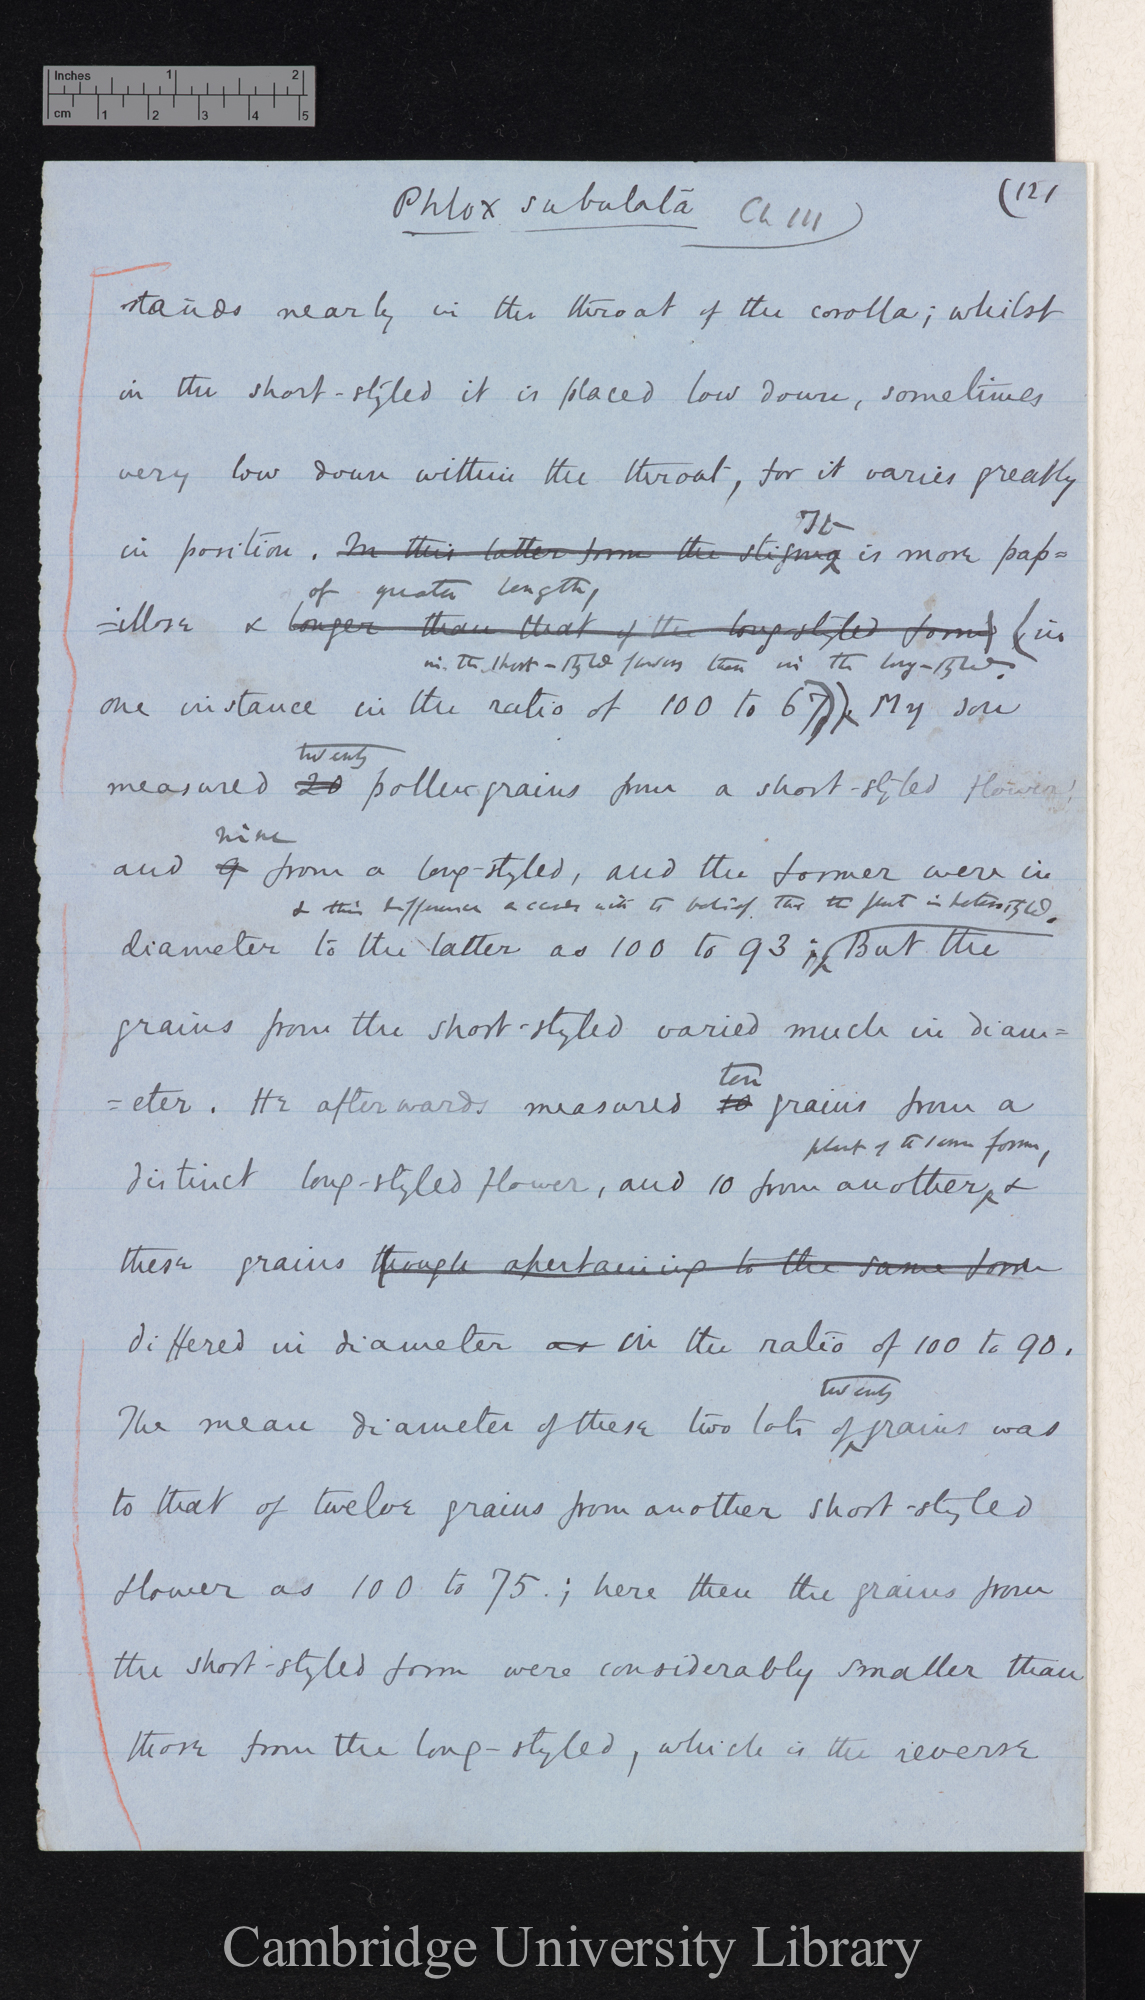 Inches 1 2
cm 1 2 3 4 5
Phlox subulata Ch III (121
stands nearly in the throat of the corolla; whilst
in the short-styled it is placed low down, sometimes
very low down within the throat, for it varies greatly
It
in position. In this latter form the stigma is more pap=
of greater length,
=illose & longer than that of the long-styled form) (in
in the short-styled flowers than in the long-styled.
one instance in the ratio of 100 to 67). My son
twenty
measured 20 pollen-grains from a short-styled flower,
nine
and 9 from a long-styled, and the former were in
& this difference accords with the belief that the plant is heterostyled.
diameter to the latter as 100 to 93; But the
grains from the short-styled varied much in diam=
ten
=eter. He afterwards measured 10 grains from a
plant of the same form,
distinct long-styled flower, and 10 from another, &
these grains though apertaining to the same form
differed in diameter as in the ratio of 100 to 90.
twenty
The mean diameter of these two lots of grains was
to that of twelve grains from another short-styled
flower as 100 to 75.; here then the grains from
the short-styled form were considerably smaller than
those from the long-styled, which is the reverse
Cambridge University Library